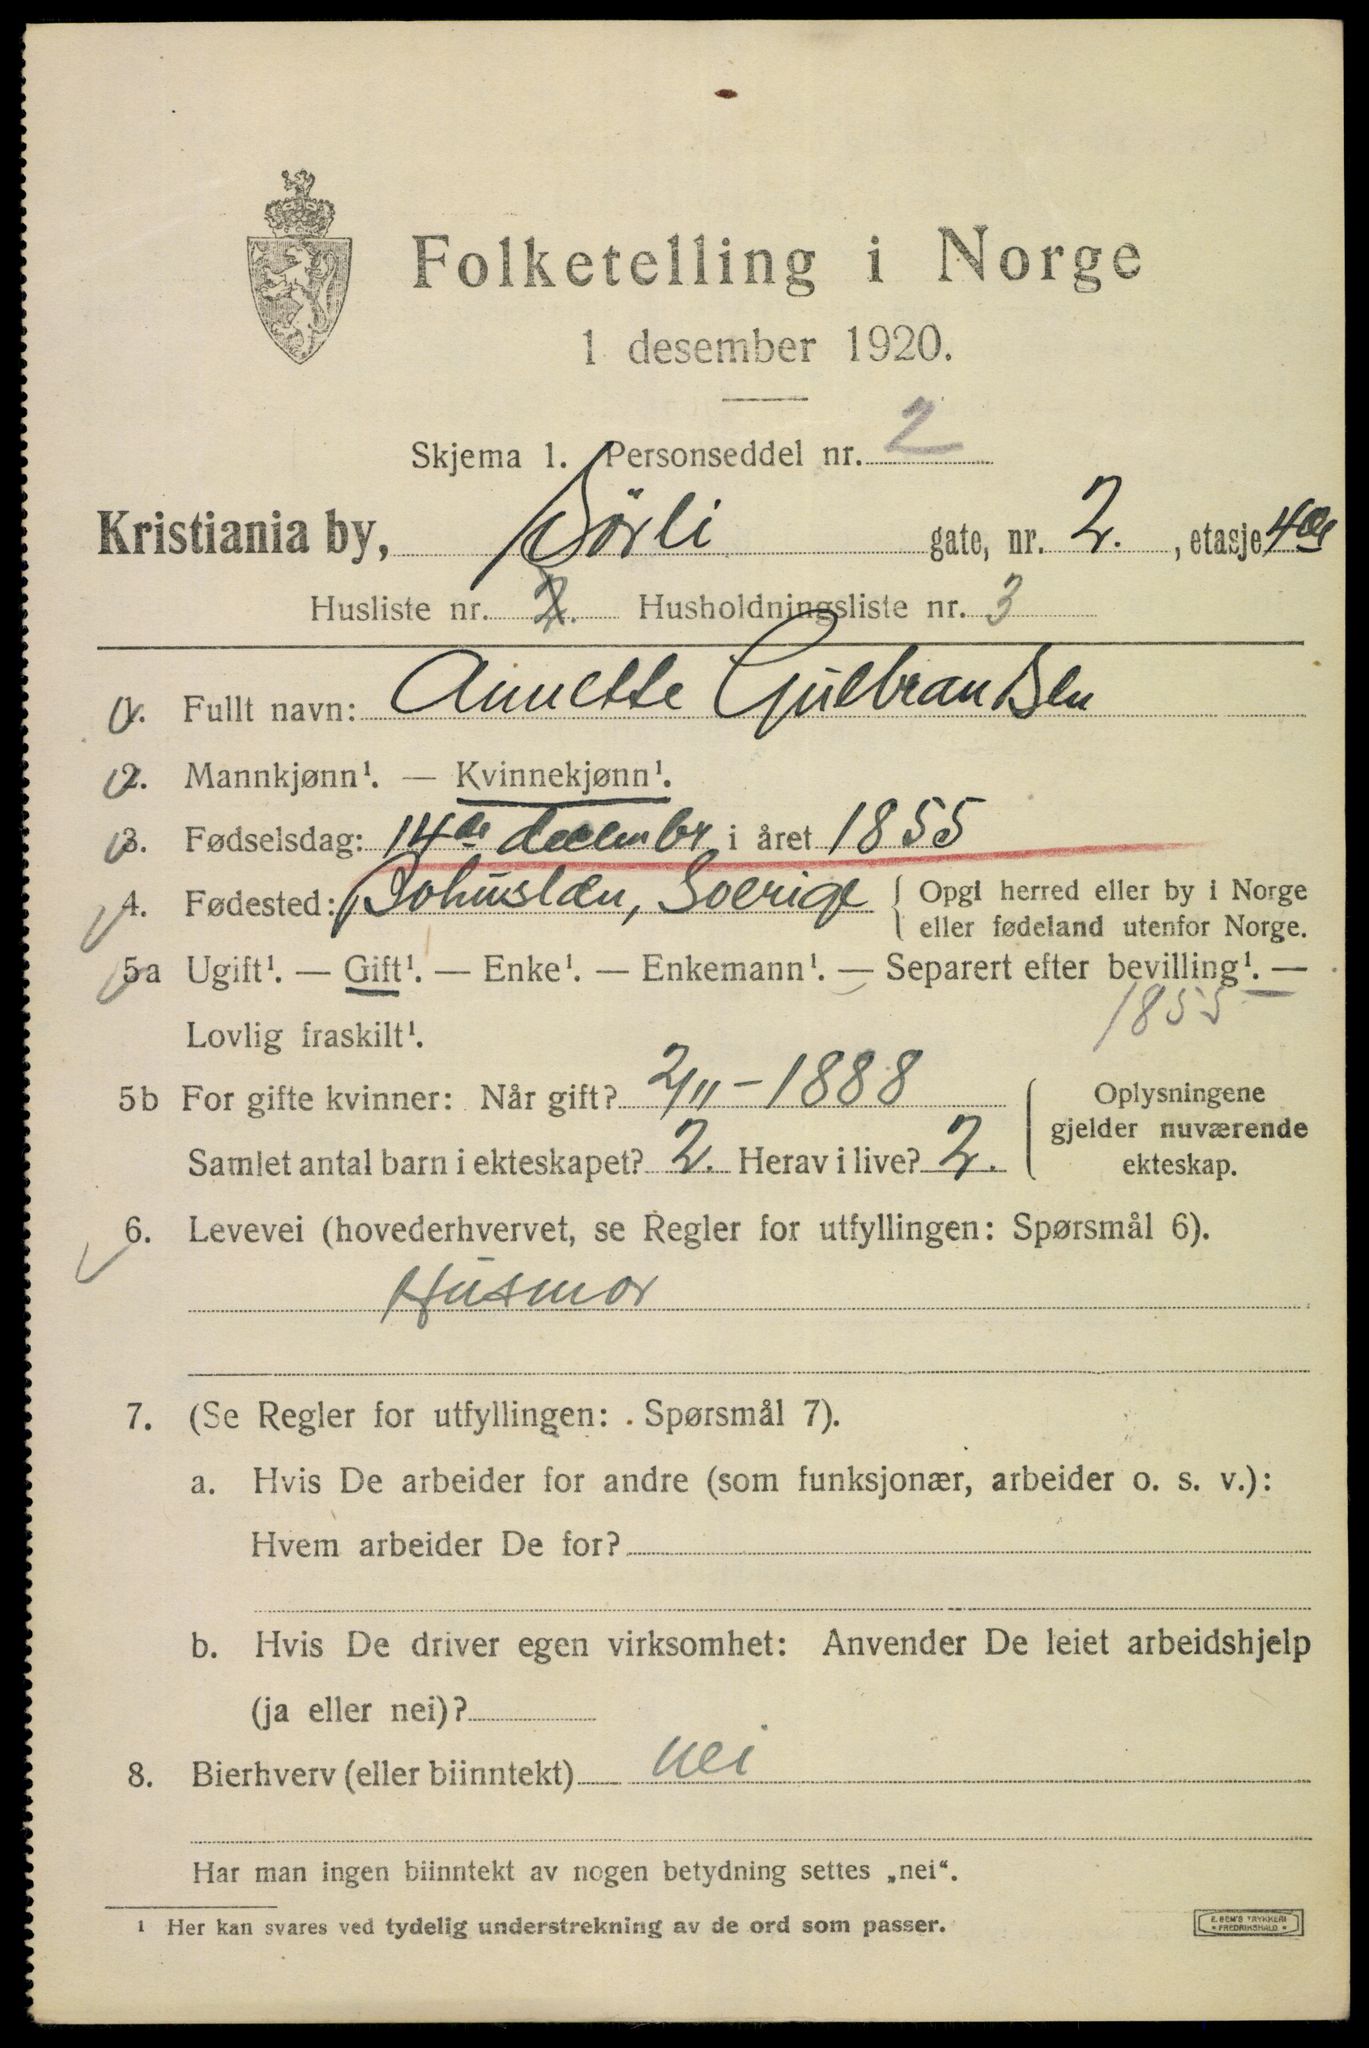 Folketelling i Norge
1 desember 1920.
Skjema 1. Personseddel nr. 2
Kristiania by, Sörli gate, nr. 2. , etasje 4de
Husliste nr. 2. Husholdningsliste nr. 3
1. Fullt navn: Annette Gulbransen
2. Mannkjønn¹. — Kvinnekjønn¹.
3. Fødselsdag: 14de decembr i året 1855
4. Fødested: Bohuslæn, Sverige { Opgi herred eller by i Norge
eller fødeland utenfor Norge.
5a Ugift¹. — Gift¹. — Enke¹. — Enkemann¹. — Separert efter bevilling¹. —
1855
Lovlig fraskilt¹.
5b For gifte kvinner: Når gift? 2/11 - 1888 Oplysningene
gjelder nuværende
Samlet antal barn i ekteskapet? 2. Herav i live? 2. ekteskap.
6. Levevei (hovederhvervet, se Regler for utfyllingen: Spørsmål 6).
Husmor
7. (Se Regler for utfyllingen: Spørsmål 7).
a. Hvis De arbeider for andre (som funksjonær, arbeider o. s. v.):
Hvem arbeider De for?
b. Hvis De driver egen virksomhet: Anvender De leiet arbeidshjelp
(ja eller nei)?
8. Bierhverv (eller biinntekt) nei
Har man ingen biinntekt av nogen betydning settes „nei“.
¹ Her kan svares ved tydelig understrekning av de ord som passer.
E. SEM'S TRYKKERI
* FREDRIKSHALD *